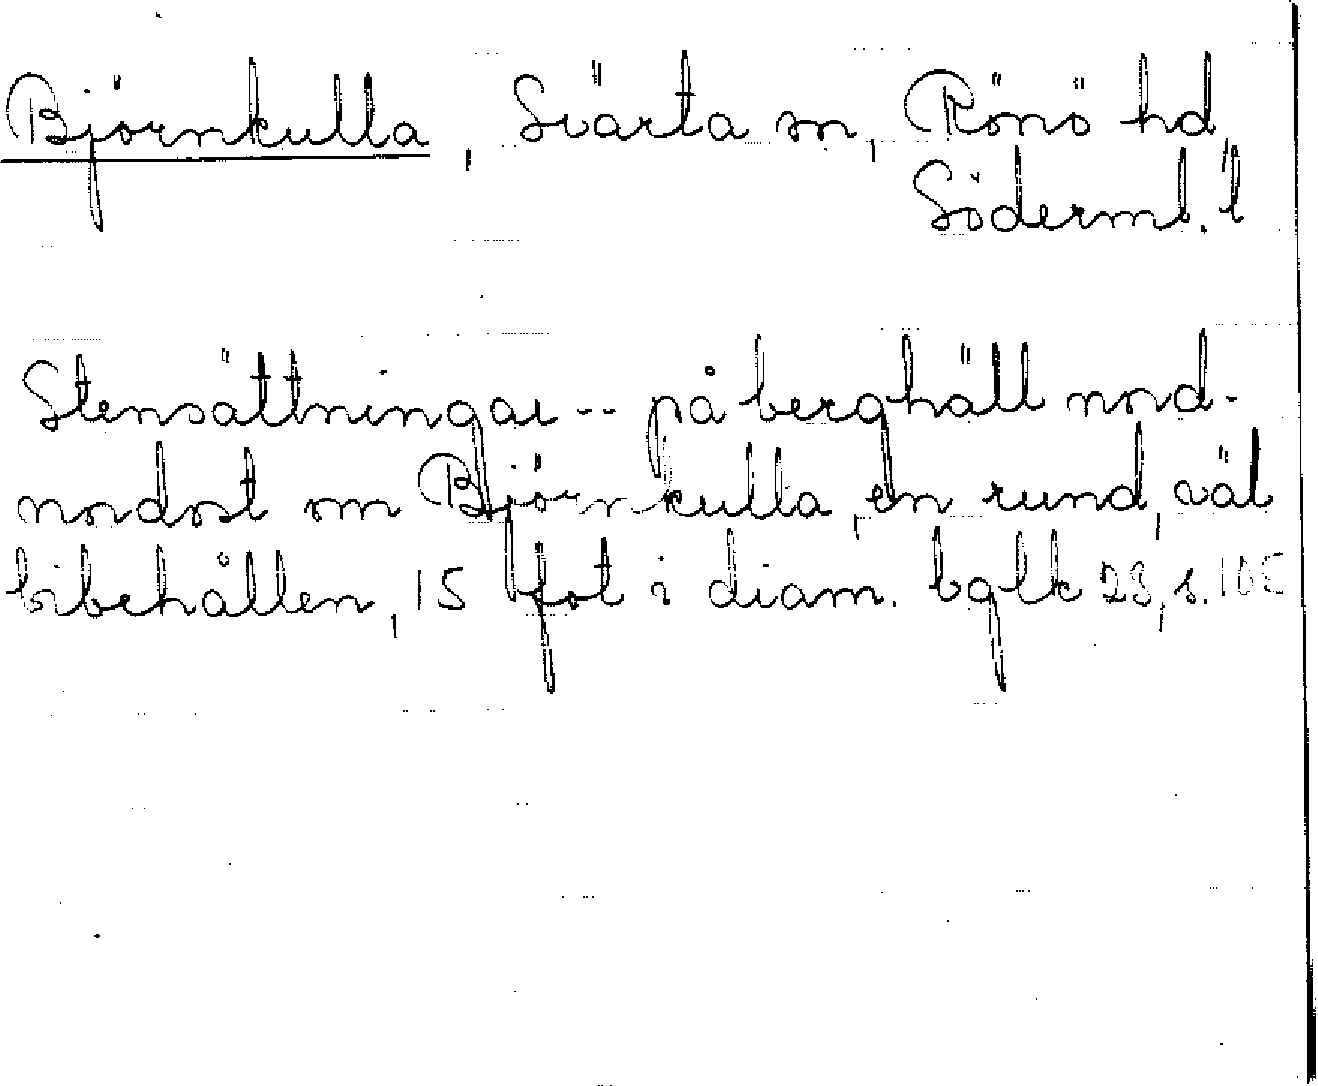 Björnkulla, Svärta sn, Rönö hd,
Söderml. l
Stensättningar -- på berghäll nord-
nordost om Björnkulla, en rund, väl
bibehållen, 15 fot i diam. bglk 23, s.